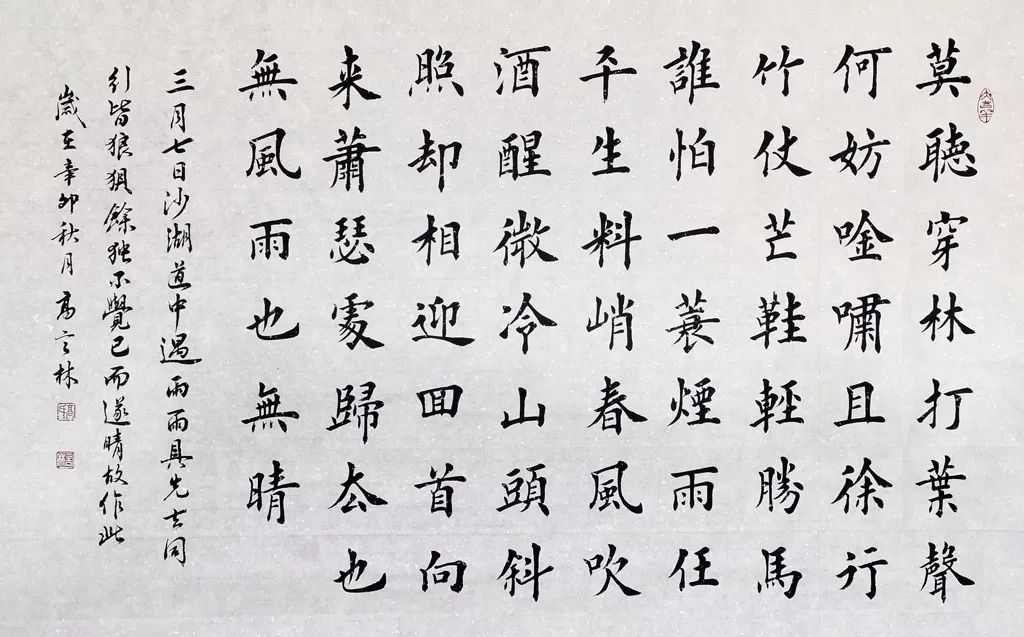 莫聽穿林打葉聲
何妨唫嘯且徐行
竹仗芒鞋輕勝馬
誰怕一蓑煙雨任
平生料峭春風吹
酒醒微冷山頭斜
照却相迎回首向
来蕭瑟處歸厺也
無風雨也無晴
三月七日沙湖道中遇雨雨具先去同
行皆狼狽餘独不覺已而遂晴故作此
歲在辛卯秋月高林